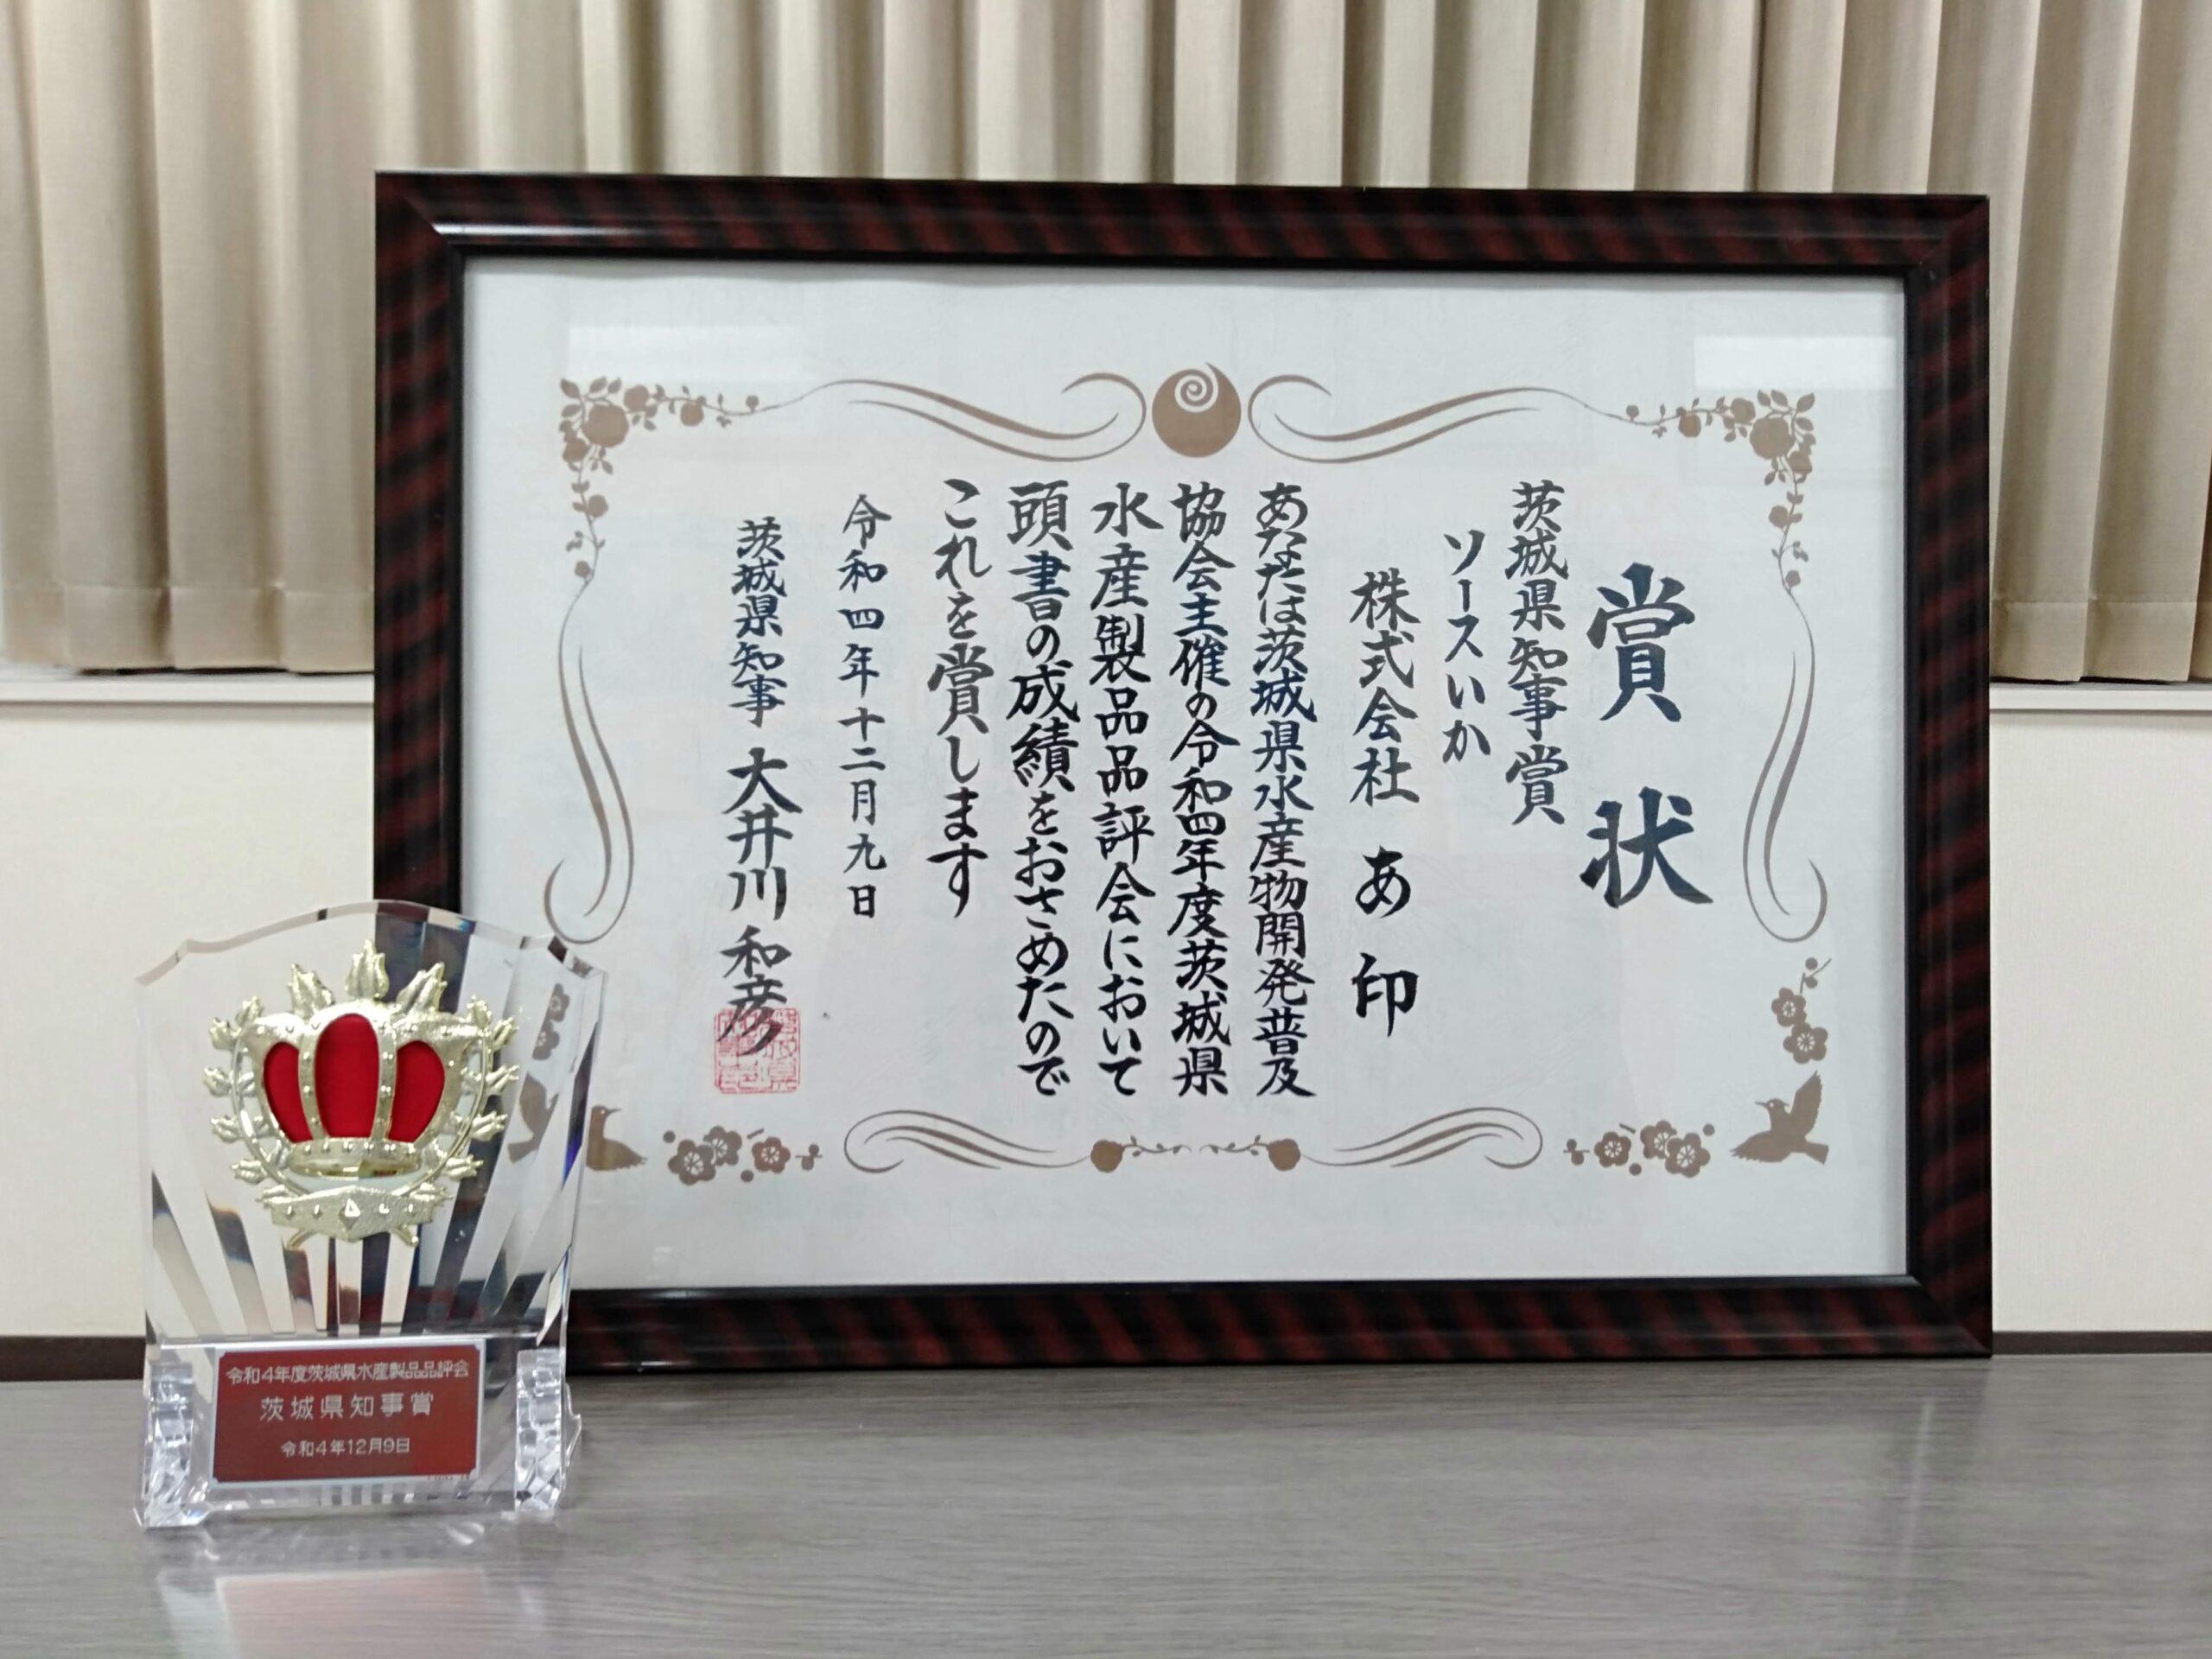 賞状
茨城県知事賞
ソースいか
株式会社 あ印
あなたは茨城県水産物開発普及
協会主催の令和四年度茨城県
水産製品品評会において
頭書の成績をおさめたので
これを賞します
令和四年十二月九日
茨城県知事 大井川 和彦
令和4年度茨城県水産製品品評会
茨城県知事賞
令和4年12月9日